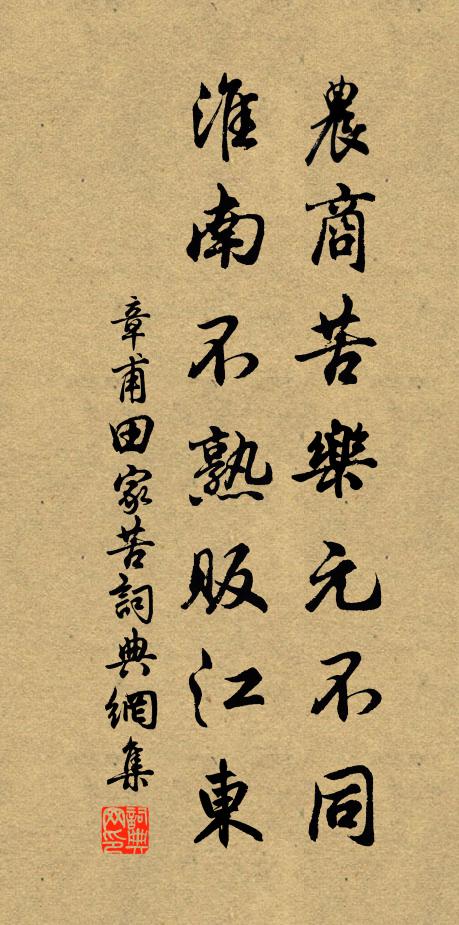 農商苦樂元不同
淮南不熟販江東
章甫田家苦詞典網集
詞典網印